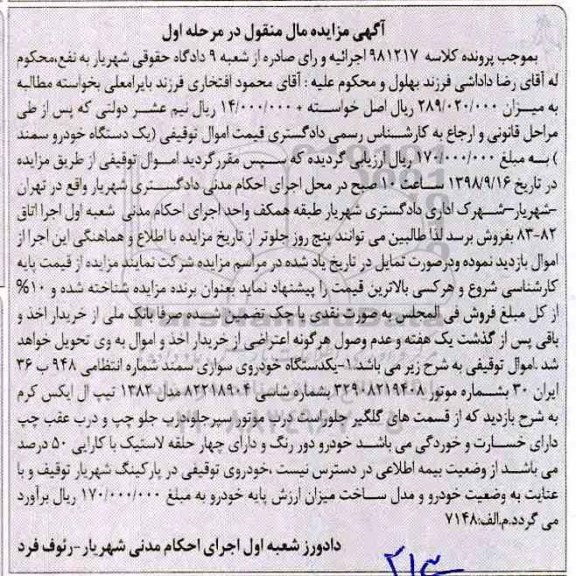 آگهی مزایده مال منقول در مرحله اول
بموجب پرونده کلاسه ۹۸۱۲۱۷ اجرائیه و رای صادره از شعبه ۹ دادگاه حقوقی شهریار به نفع،محکوم
له آقای رضا داداشی فرزند بهلول و محکوم علیه : آقای محمود افتخاری فرزند بایرامعلی بخواسته مطالبه
به میزان ۲۸۹/۰۲۰/۰۰۰ ریال اصل خواسته + ۱۴/۰۰۰/۰۰۰ ریال نیم عشر دولتی که پس از طی
مراحل قانونی و ارجاع به کارشناس رسمی دادگستری قیمت اموال توقیفی (یک دستگاه خودرو سمند
) به مبلغ ۱۷۰/۰۰۰/۰۰۰ ریال ارزیابی گردیده که سپس مقررگردید اموال توقیفی از طریق مزایده
در تاریخ ۱۳۹۸/۹/۱۶ ساعت ۱۰ صبح در محل اجرای احکام مدنی دادگستری شهریار واقع در تهران
-شهریار-شهرک اداری دادگستری شهریار طبقه همکف واحد اجرای احکام مدنی شعبه اول اجرا اتاق
۸۲-۸۳ بفروش برسد لذا طالبین می توانند پنج روز جلوتر از تاریخ مزایده با اطلاع و هماهنگی این اجرا از
اموال بازدید نموده ودرصورت تمایل در تاریخ یاد شده در مراسم مزایده شرکت نمایند مزایده از قیمت پایه
کارشناسی شروع و هرکسی بالاترین قیمت را پیشنهاد نماید بعنوان برنده مزایده شناخته شده و ۱۰%
از کل مبلغ فروش فی المجلس به صورت نقدی یا چک تضمین شده صرفا بانک ملی از خریدار اخذ و
باقی پس از گذشت یک هفته و عدم وصول هرگونه اعتراضی از خریدار اخذ و اموال به وی تحویل خواهد
شد .اموال توقیفی به شرح زیر می باشد:۱-یکدستگاه خودروی سواری سمند شماره انتظامی ۹۴۸ ب ۳۶
ایران ۳۰ بشماره موتور ۳۲۹۰۸۲۱۹۴۰۸ بشماره شاسی ۸۲۲۱۸۹۰۴ مدل ۱۳۸۲ تیپ ال ایکس کرم
به شرح بازدید که از قسمت های گلگیر جلوراست،درب موتور،سپرجلو،درب جلو چپ و درب عقب چپ
دارای خسارت و خوردگی می باشد خودرو دور رنگ و دارای چهار حلقه لاستیک با کارایی ۵۰ درصد
می باشد از وضعیت بیمه اطلاعی در دسترس نیست ،خودروی توقیفی در پارکینگ شهریار توقیف و با
عنایت به وضعیت خودرو و مدل ساخت میزان ارزش پایه خودرو به مبلغ ۱۷۰/۰۰۰/۰۰۰ ریال برآورد
می گردد.م.الف:۷۱۴۸
دادورز شعبه اول اجرای احکام مدنی شهریار-رئوف فرد